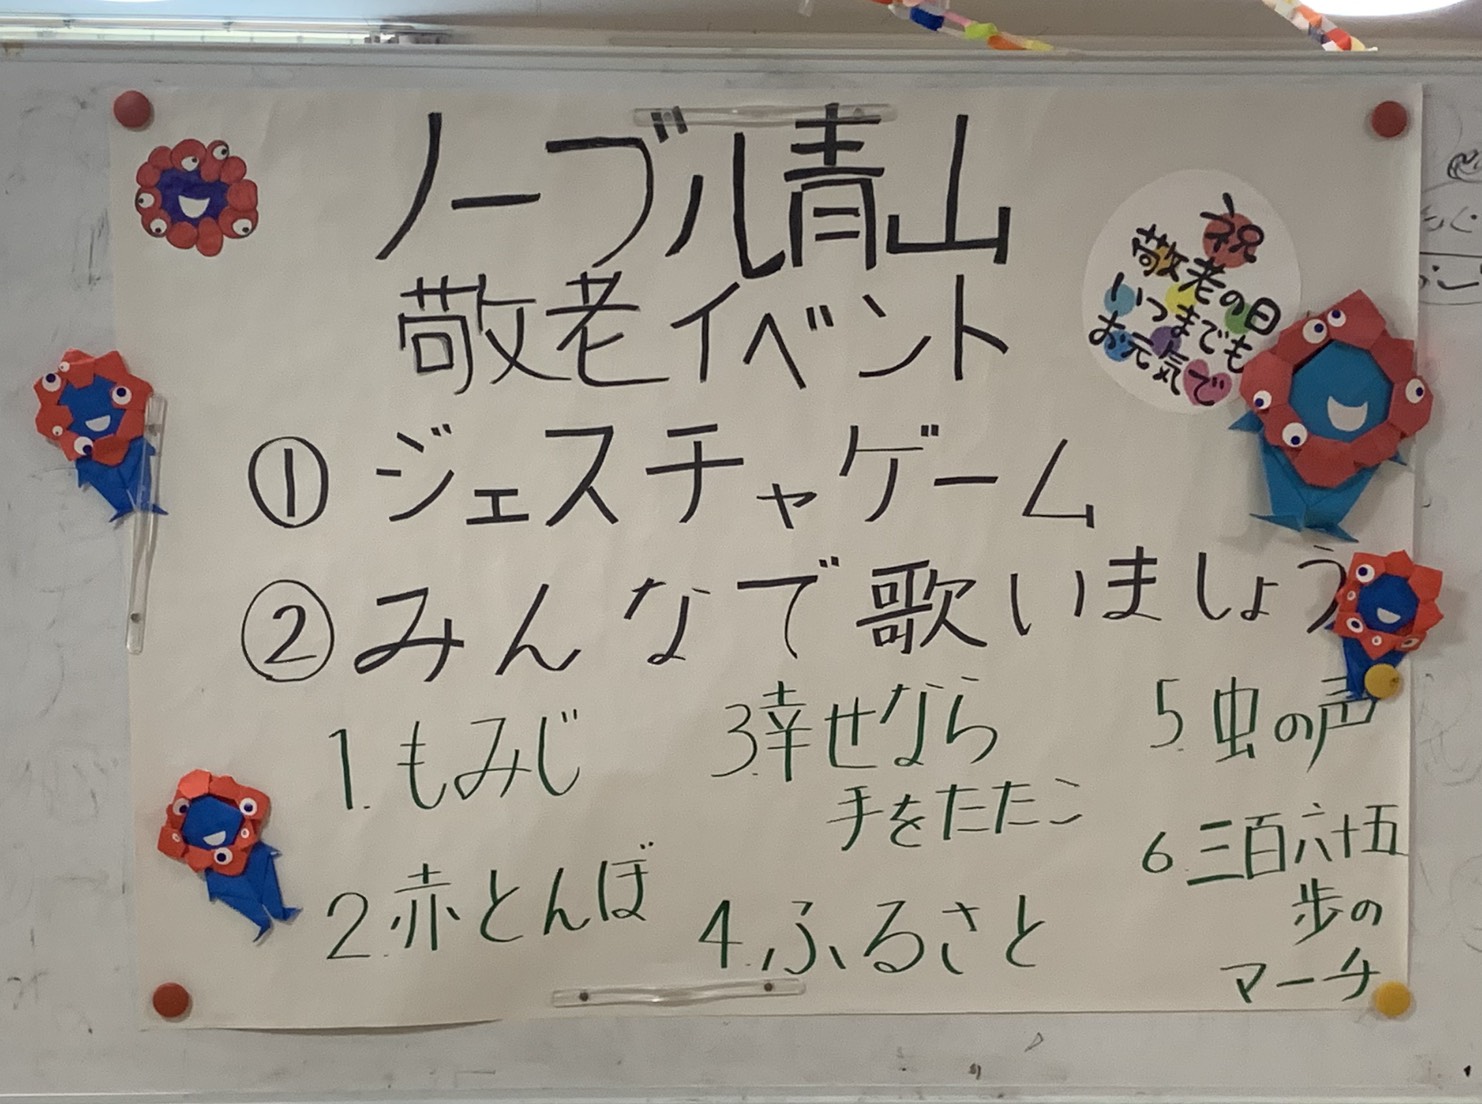 ノーブル青山
敬老イベント
祝
敬老の日
いつまでも
お元気で
① ジェスチャゲーム
② みんなで歌いましょう
1. もみじ
2. 赤とんぼ
3. 幸せなら
手をたたこ
4. ふるさと
5. 虫の声
6. 三百六十五
歩の
マーチ